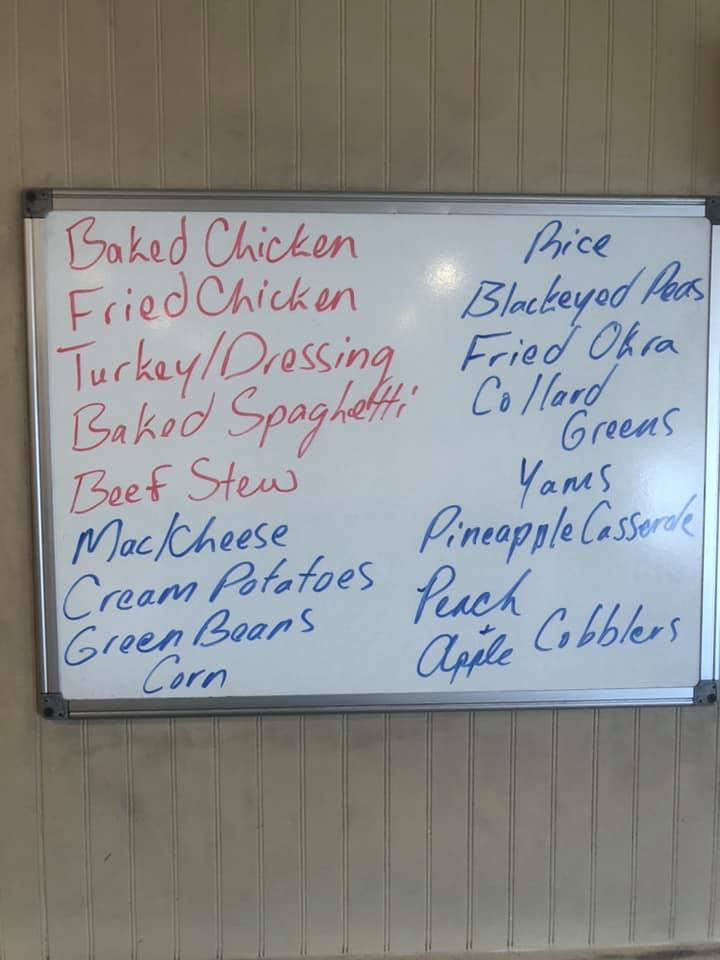 Baked Chicken
Fried Chicken
Turkey/Dressing
Baked Spaghetti
Beef Stew
Mac/Cheese
Cream Potatoes
Green Beans
Corn
Rice
Blackeyed Peas
Fried Okra
Collard
Greens
Yams
Pineapple Casserole
Peach
+
Apple Cobblers